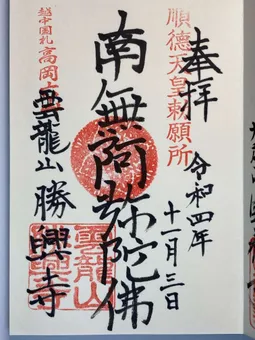 奉拝
順德天皇勅願所
令和四年
十一月三日
南無阿弥陀佛
越中國札
高岡
雲龍山 勝興寺
雲龍山
勝興寺